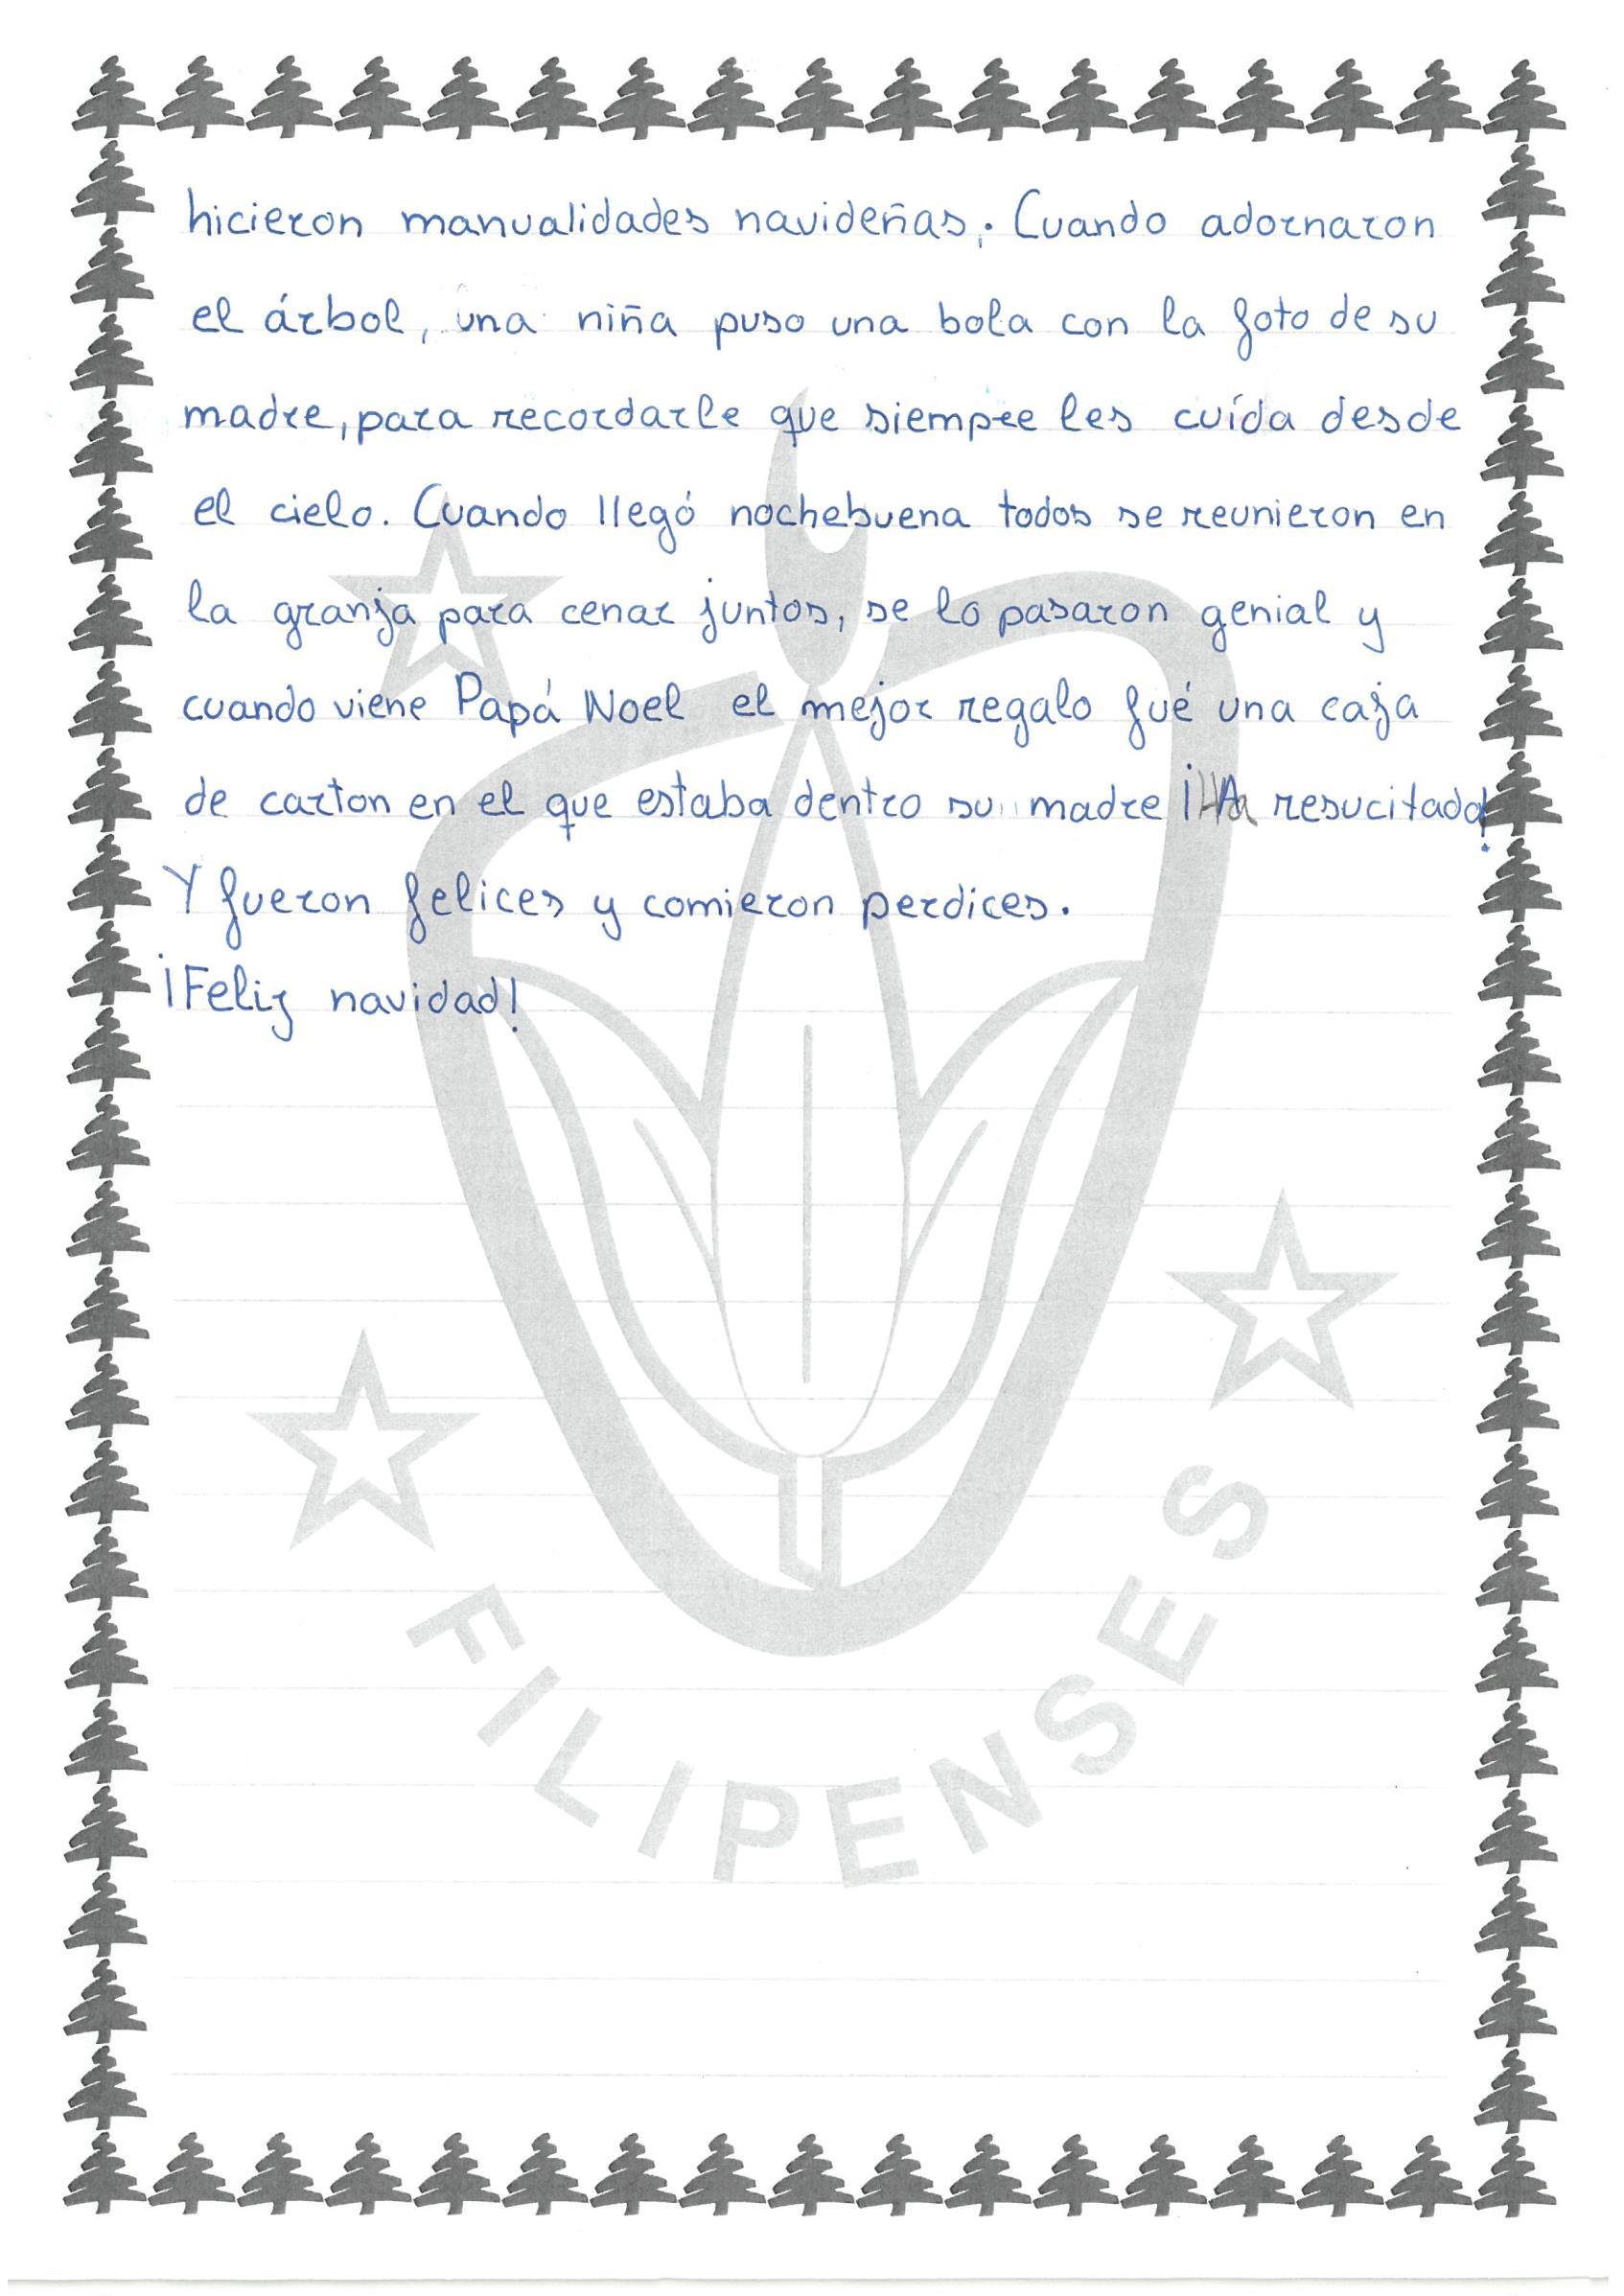 hicieron manualidades navideñas. Cuando adornaron
el árbol, una niña puso una bola con la foto de su
madre, para recordarle que siempre les cuída desde
el cielo. Cuando llegó nochebuena todos se reunieron en
la granja para cenar juntos, se lo pasaron genial y
cuando viene Papá Noel el mejor regalo fué una caja
de carton en el que estaba dentro su madre ¡Ha resucitado!
Y fueron felices y comieron perdices.
¡Feliz navidad!
FILIPENSES